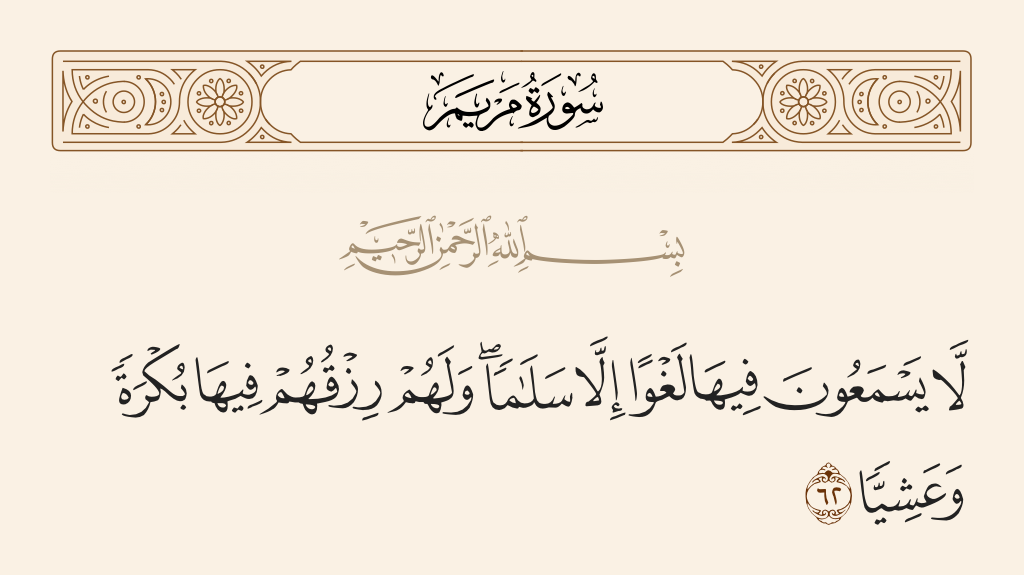 سُورَةُ مَرْيَمَ
بِسْمِ ٱللَّهِ ٱلرَّحْمَٰنِ ٱلرَّحِيمِ
لَّا يَسْمَعُونَ فِيهَا لَغْوًا إِلَّا سَلَٰمًا ۖ وَلَهُمْ رِزْقُهُمْ فِيهَا بُكْرَةً
وَعَشِيًّا ٦٢